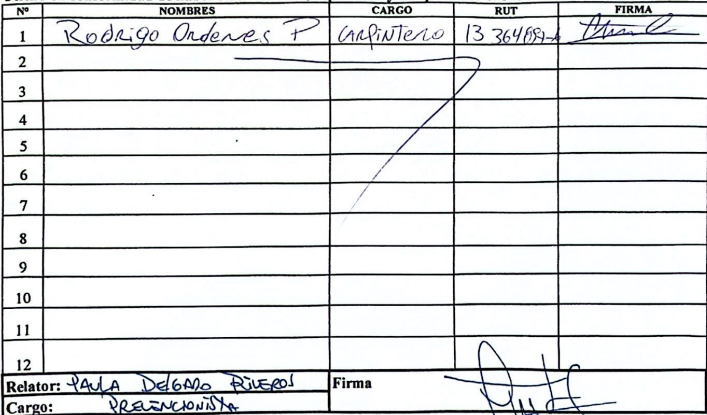 Nº NOMBRES CARGO RUT FIRMA
1 Rodrigo Ordenes P Carpintero
2
3
4
5
6
7
8
9
10
11
12
Relator: PAULA DELGADO RIVEROS Firma
Cargo: PREVENCIONISTA